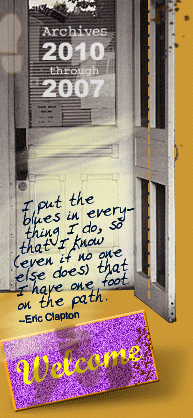 Archives
2010
through
2007
I put the
blues in every-
thing I do, so
that I know
(even if no one
else does) that
I have one foot
on the path.
--Eric Clapton
Welcome